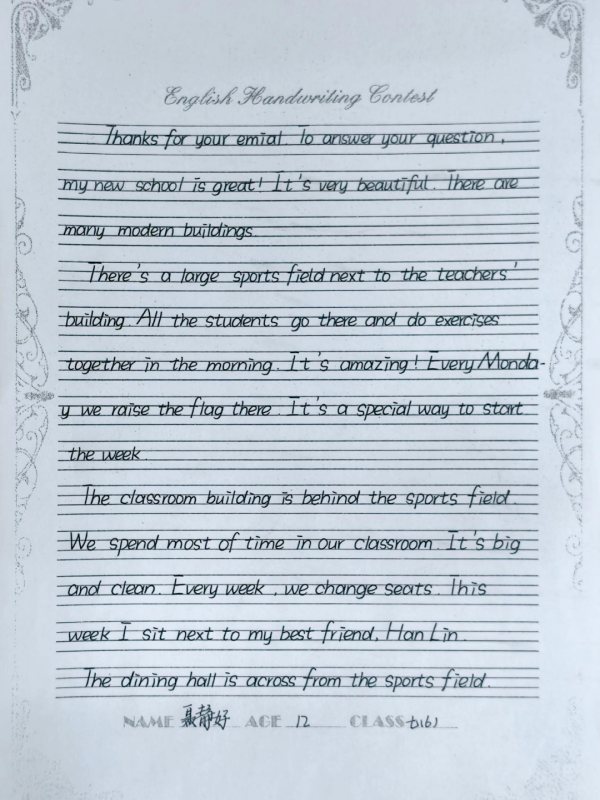 English Handwriting Contest
Thanks for your emial. To answer your question,
my new school is great! It's very beautiful. There are
many modern buildings.
There's a large sports field next to the teachers'
building. All the students go there and do exercises
together in the morning. It's amazing! Every Monda-
y we raise the flag there. It's a special way to start
the week.
The classroom building is behind the sports field.
We spend most of time in our classroom. It's big
and clean. Every week, we change seats. This
week I sit next to my best friend, Han Lin.
The dining hall is across from the sports field.
NAME 聂静好 AGE 12 CLASS